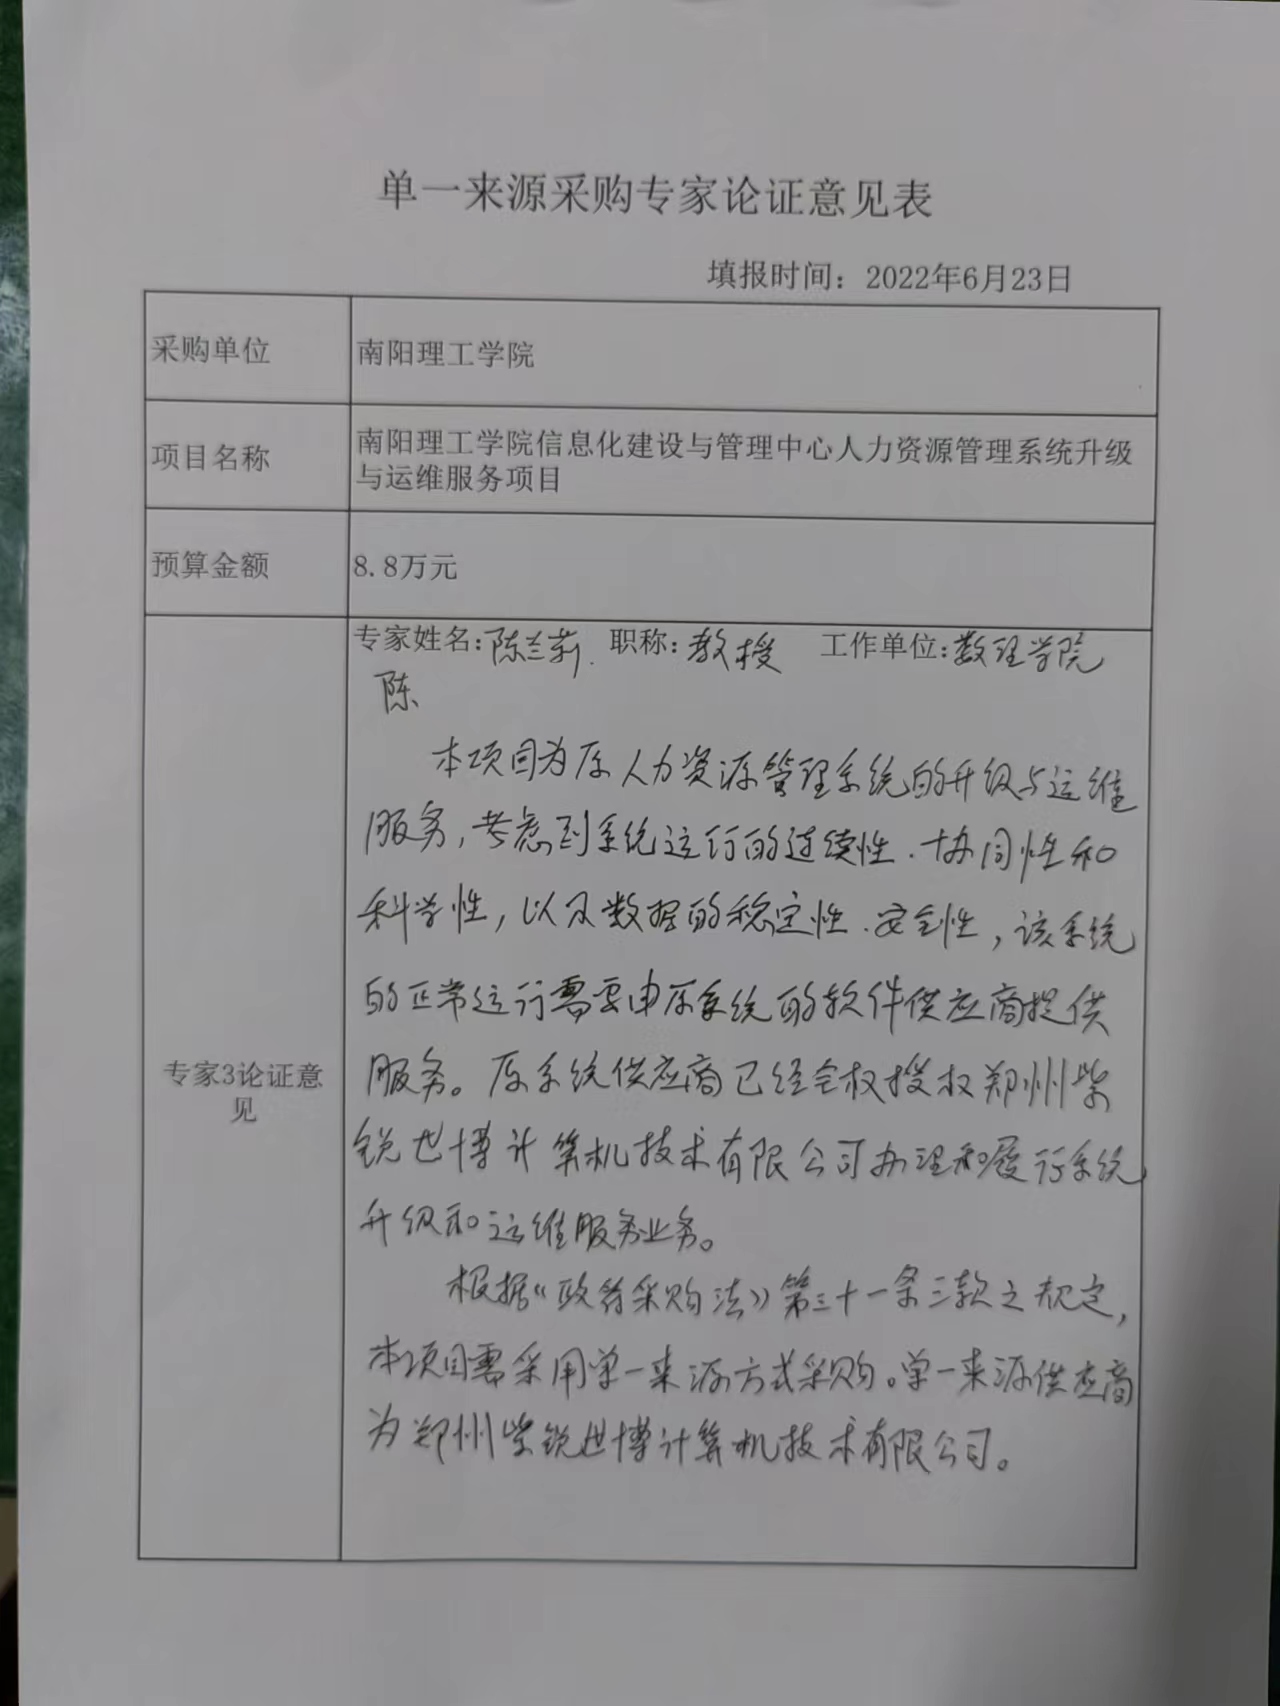 单一来源采购专家论证意见表
填报时间：2022年6月23日
采购单位
南阳理工学院
项目名称
南阳理工学院信息化建设与管理中心人力资源管理系统升级
与运维服务项目
预算金额
8.8万元
专家3论证意
见
专家姓名：陈兰莉. 职称：教授 工作单位：数理学院
陈
本项目为原人力资源管理系统的升级与运维
服务，考虑到系统运行的连续性、协同性和
科学性，以及数据的稳定性、安全性，该系统
的正常运行需要由原系统的软件供应商提供
服务。原系统供应商已经全权授权郑州紫
锐世博计算机技术有限公司办理和履行系统
升级和运维服务业务。
根据《政府采购法》第三十一条三款之规定，
本项目需采用单一来源方式采购。单一来源供应商
为郑州紫锐世博计算机技术有限公司。